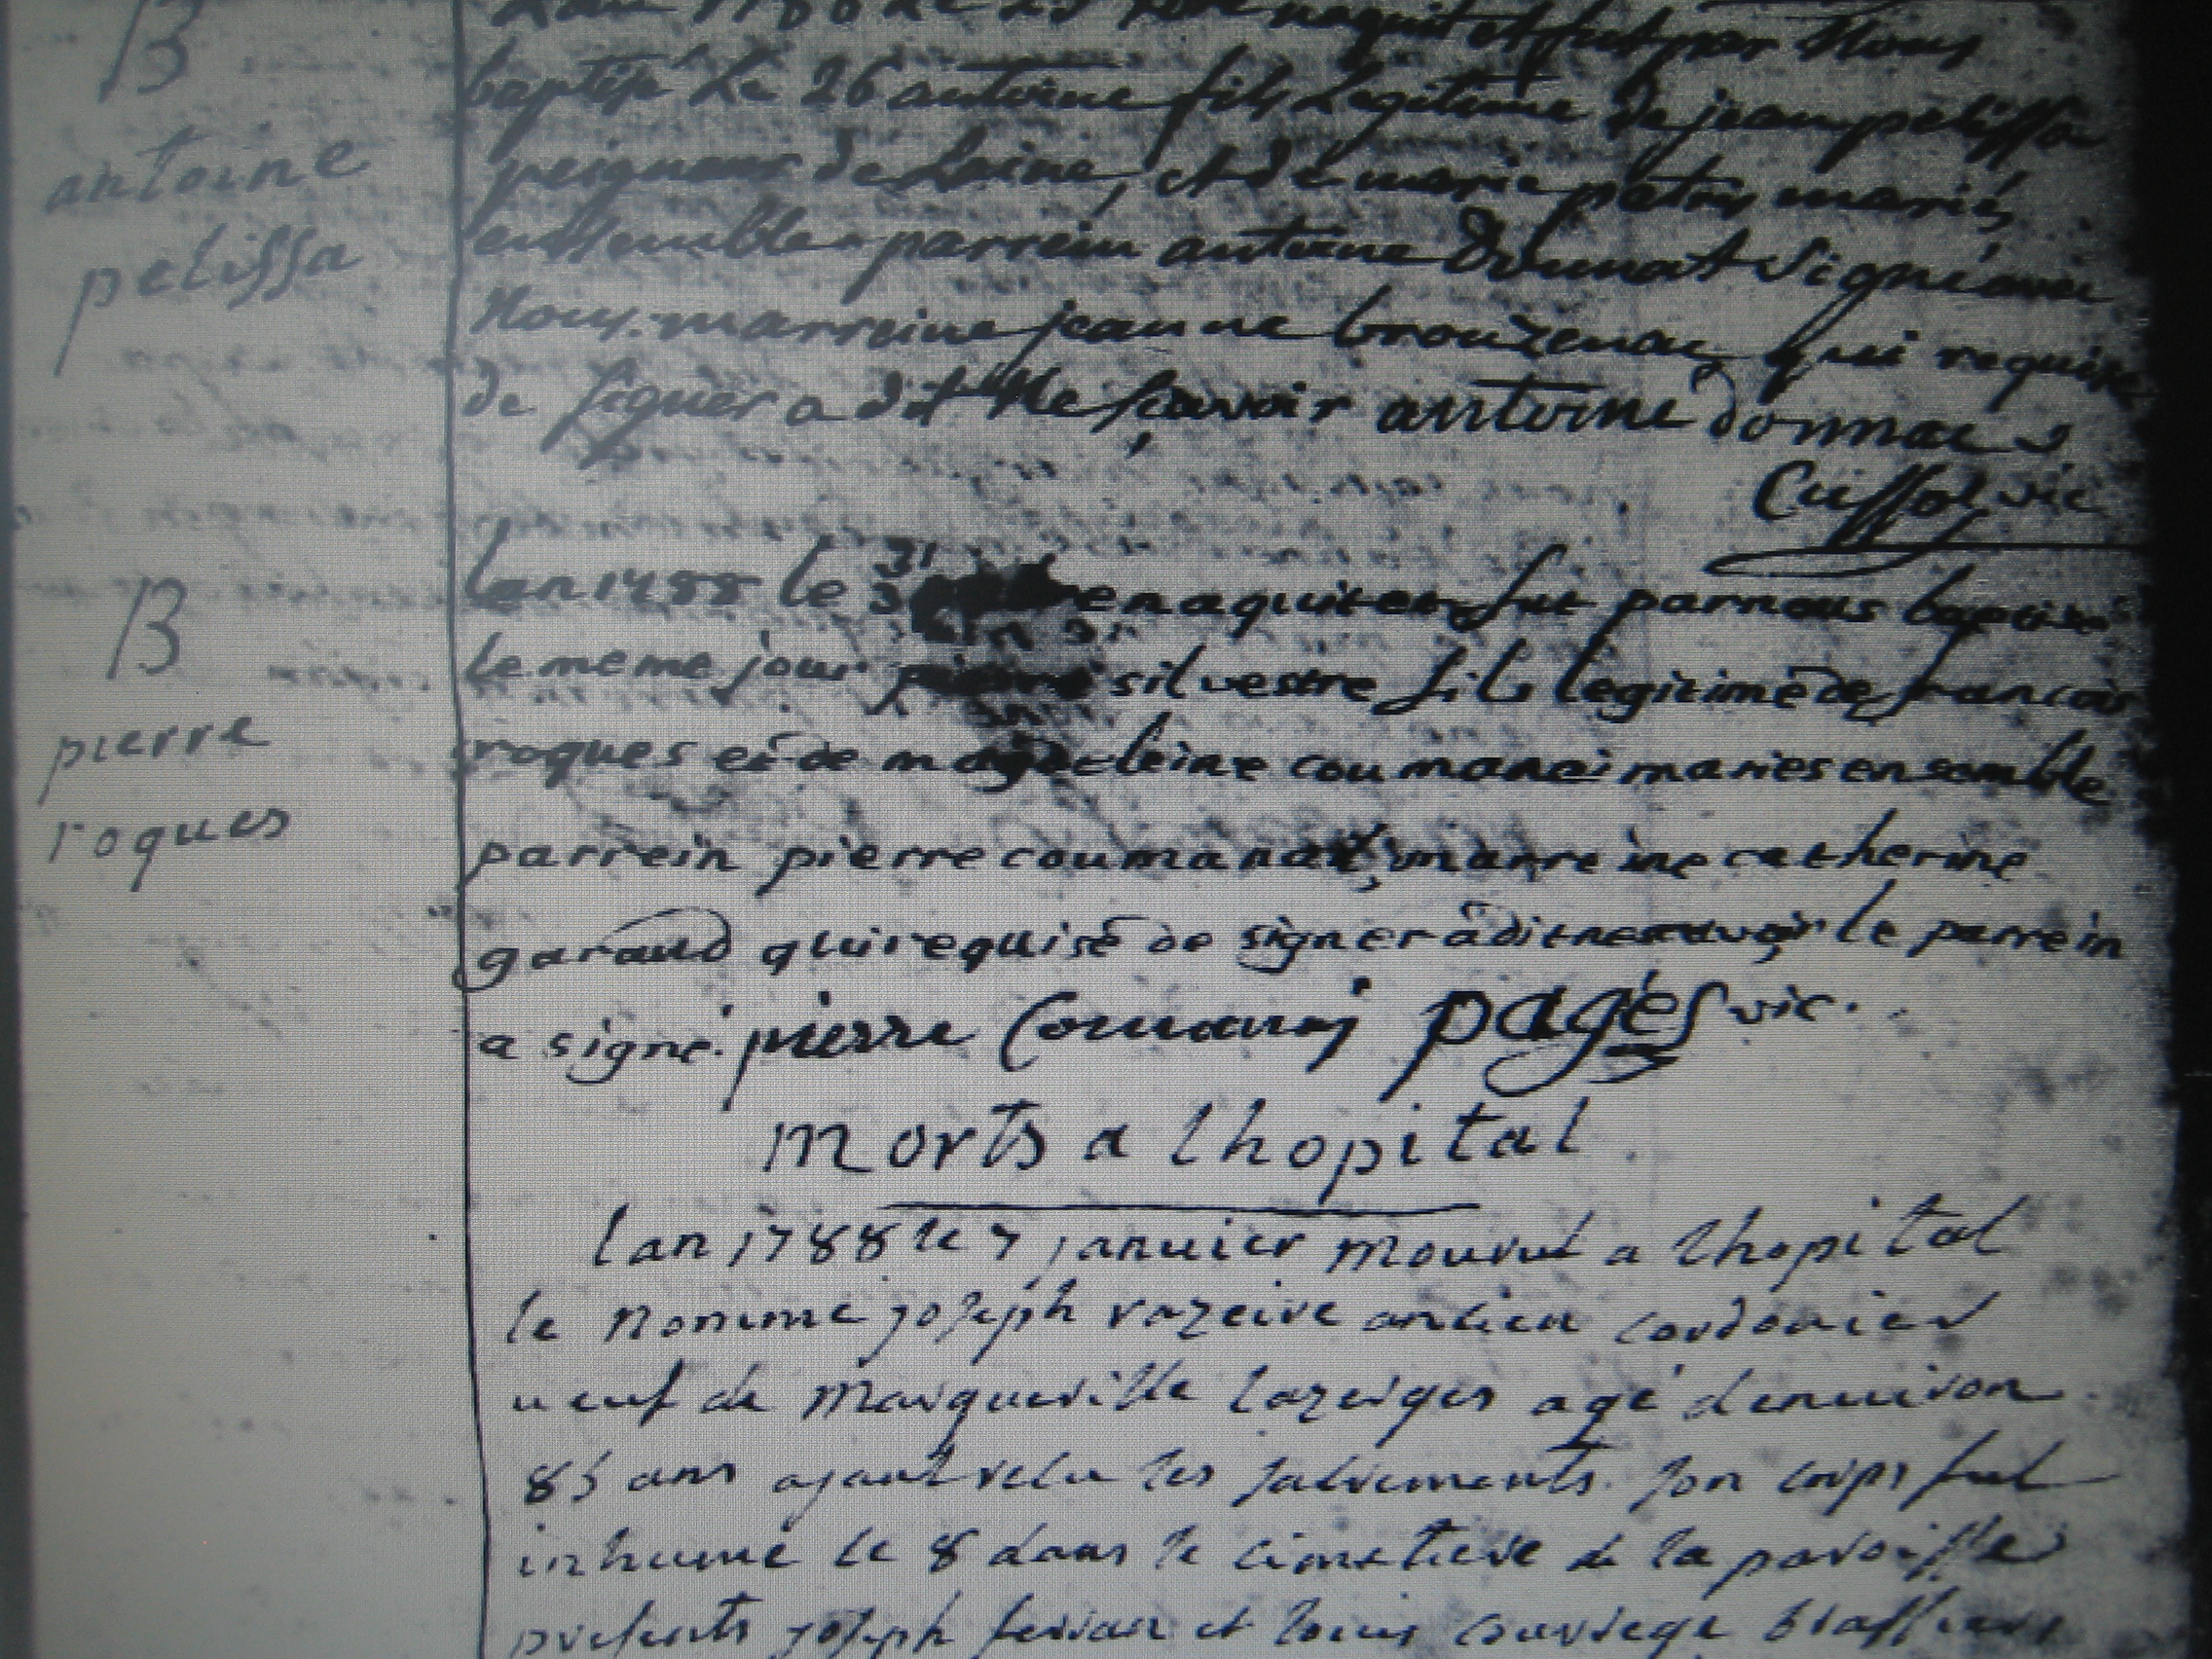 B
antoine
pelissa
naquit et fut par Nous
baptisé Le 26 antoine fils Legitime de jean pelissa
peigneur de Laine, et de marie patry mariés
ensemble parrein antoine Donnat Signé avec
Nous. marreine jeanne brouzenac qui requise
de signer a dit Ne sçavoir antoine donnat
Cussol vic
B
pierre
roques
lan 1788 le 31 naquit et fut par nous baptisé
le meme jour pierre silvestre fils legitime de francois
roques et de magdeleine coumanai maries ensemble
parrein pierre coumanai, marreine catherine
garaud qui requise de signer a dit ne savoir le parrein
a signé. pierre Comanj pagés vic.
morts a lhopital
lan 1788 le 7 janvier mourut a lhopital
le nommé joseph razeire ancien cordonier
veuf de Marguerille lazeiges agé denviron
85 ans ajant relu les sacrements. son corps fut
inhumé le 8 dans le cimetiere de la paroisse
presents joseph ferran et louis brassiers